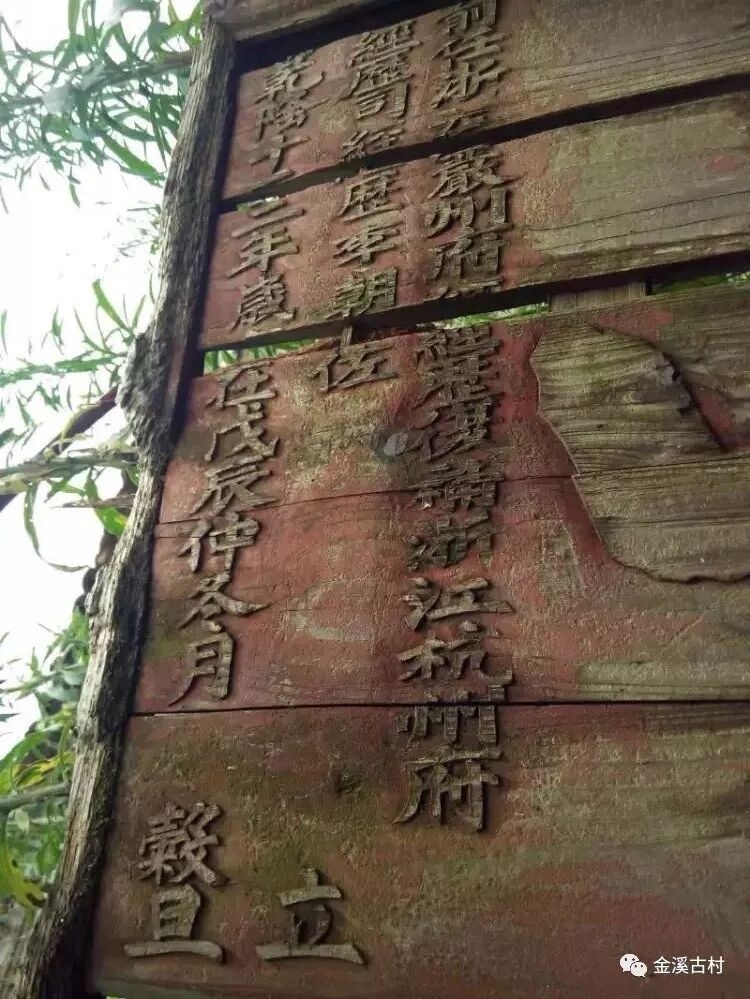 前任浙江嚴州府經歷復補浙江杭州府
經歷司經歷車朝佐立
乾隆十三年歲在戊辰仲冬月穀旦
金溪古村